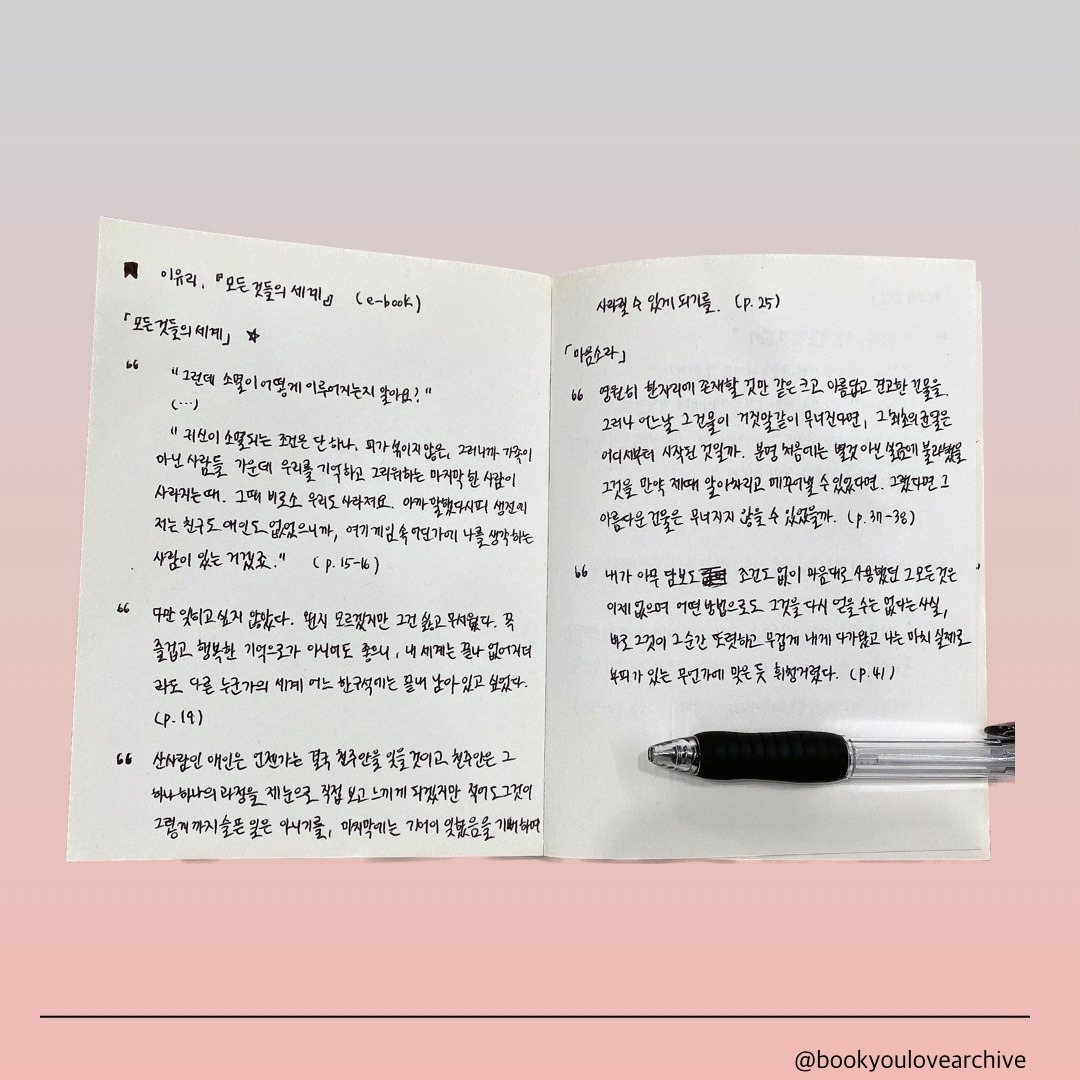 이유리, 『모든 것들의 세계』 (e-book)
「모든 것들의 세계」 ☆
“ "그런데 소멸이 어떻게 이루어지는지 알아요?"
(…)
"귀신이 소멸되는 조건은 단 하나. 피가 섞이지 않은, 그러니까 가족이
아닌 사람들 가운데 우리를 기억하고 그리워하는 마지막 한 사람이
사라지는 때. 그때 비로소 우리도 사라져요. 아까 말했다시피 생전에
저는 친구도 애인도 없었으니까, 여기 게임 속 어딘가에 나를 생각하는
사람이 있는 거겠죠." (p.15-16)
“ 다만 잊히고 싶지 않았다. 왠지 모르겠지만 그건 싫고 무서웠다. 꼭
즐겁고 행복한 기억으로가 아니어도 좋으니, 내 세계는 끝나 없어지더
라도 다른 누군가의 세계 어느 한구석에는 끝내 남아 있고 싶었다.
(p.19)
“ 산 사람인 애인은 언젠가는 결국 천주안을 잊을 것이고, 천주안은 그
하나하나의 과정을 제 눈으로 직접 보고 느끼게 되겠지만 적어도 그것이
그렇게까지 슬픈 일은 아니기를, 마지막에는 기어이 잊혔음을 기뻐하며
사라질 수 있게 되기를. (p.25)
「마음소라」
“ 영원히 한자리에 존재할 것만 같은 크고 아름답고 견고한 건물을.
그러나 어느 날 그 건물이 거짓말같이 무너진다면, 그 최초의 균열은
어디서부터 시작된 것일까. 분명 처음에는 별것 아닌 실금에 불과했을
그것을 만약 제때 알아차리고 메꾸어낼 수 있었다면. 그랬다면 그
아름다운 건물은 무너지지 않을 수 있었을까. (p.37-38)
“ 내가 아무 담보도 조건도 없이 마음대로 사용했던 그 모든 것은
이제 없으며 어떤 방법으로도 그것을 다시 얻을 수는 없다는 사실,
바로 그것이 그 순간 또렷하고 무겁게 내게 다가왔고 나는 마치 실제로
부피가 있는 무언가에 맞은 듯 휘청거렸다. (p.41)
@bookyoulovearchive